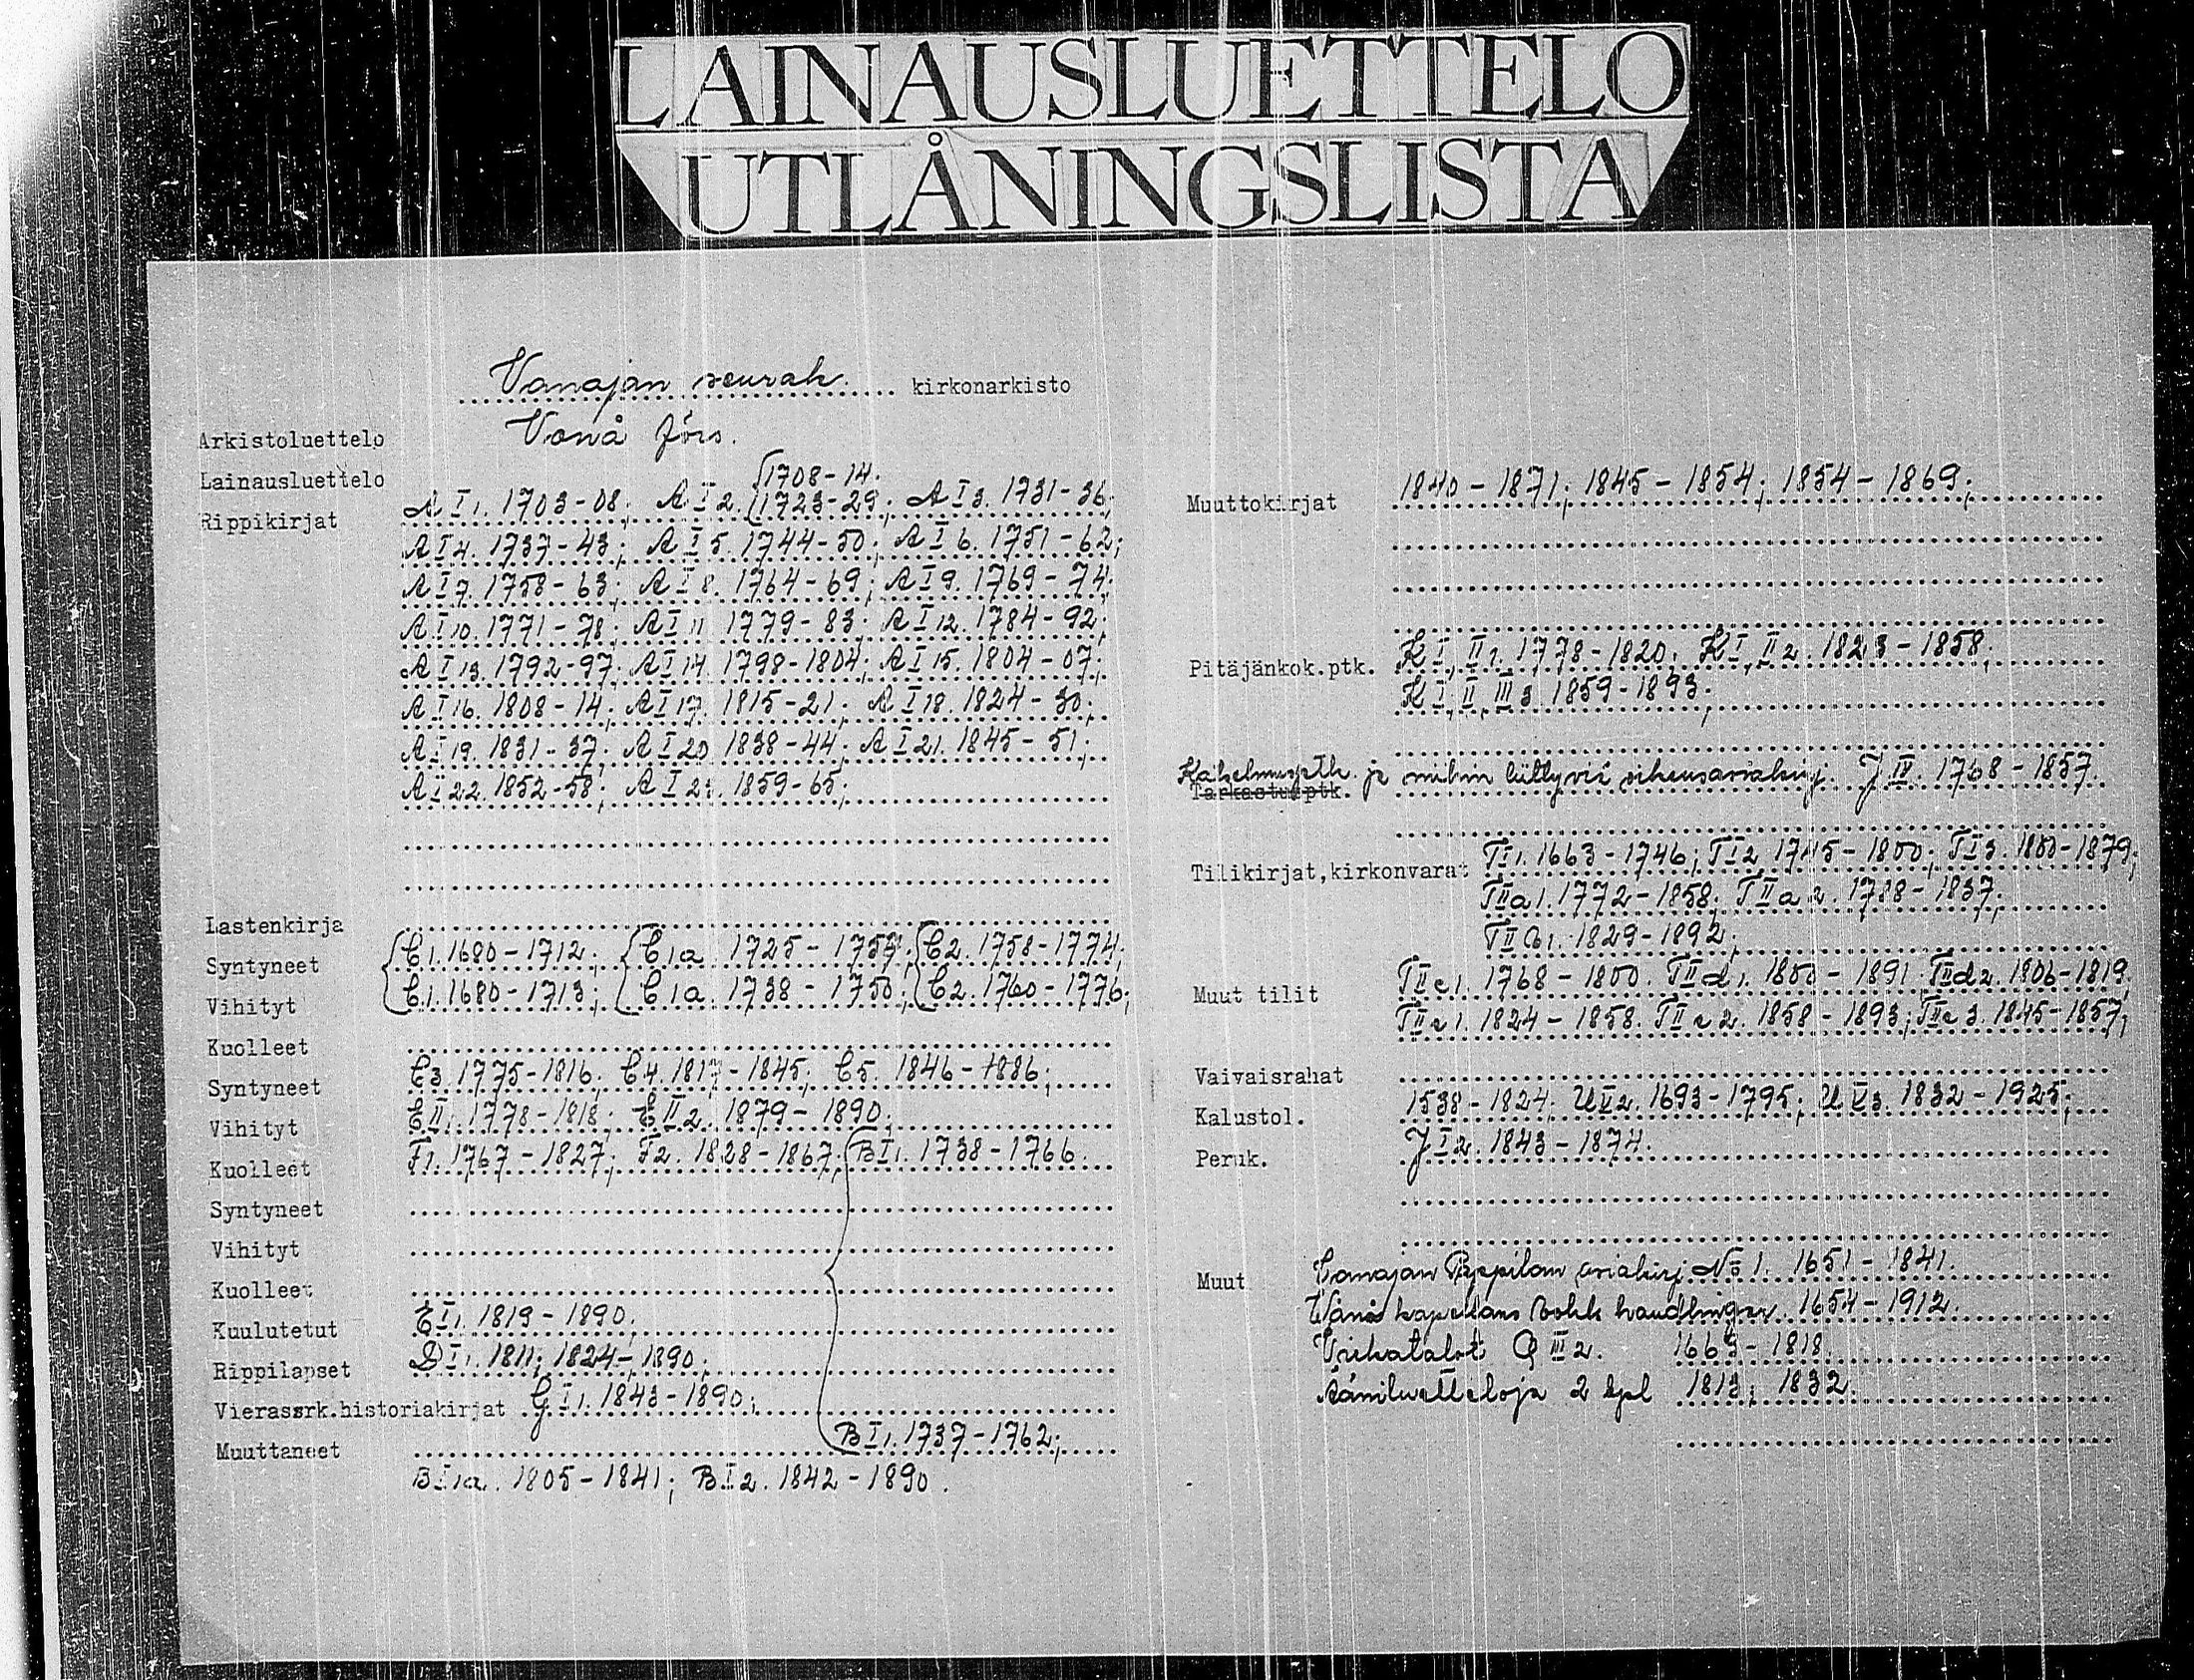 LAINAUSLUETTELO
UTLÅNINGSLISTA
Vanajan seurak. kirkonarkisto
Arkistoluettelo Vånå förs.
Lainausluettelo
Rippikirjat A I 1. 1703-08; A I 2. {1708-14. 1723-29; A I 3. 1731-36;
A I 4. 1737-43; A I 5. 1744-50; A I 6. 1751-62;
A I 7. 1758-63; A I 8. 1764-69; A I 9. 1769-74.
A I 10. 1771-78; A I 11 1779-83; A I 12. 1784-92;
A I 13. 1792-97; A I 14 1798-1804; A I 15. 1804-07;
A I 16. 1808-14; A I 17. 1815-21; A I 18. 1824-30;
A I 19. 1831-37; A I 20 1838-44; A I 21. 1845-51;
A I 22. 1852-58; A I 23. 1859-65;
Lastenkirja
Syntyneet C1. 1680-1712; C1a 1725-1757; C2. 1758-1774;
Vihityt C.1. 1680-1713; C1a. 1738-1750; C2. 1760-1776;
Kuolleet
Syntyneet C3. 1775-1816; C4. 1817-1845; C5. 1846-1886;
Vihityt E II 1. 1778-1818; E II 2. 1879-1890;
Kuolleet F1. 1767-1827; F2. 1828-1867; B I 1. 1738-1766.
Syntyneet
Vihityt
Kuolleet
Kuulutetut E I 1. 1819-1890;
Rippilapset D I 1. 1811; 1824-1890;
Vierassrk.historiakirjat G I 1. 1843-1890;
Muuttaneet B I 1. 1737-1762;
B I 1a. 1805-1841; B I 2. 1842-1890.
Muuttokirjat 1840-1871; 1845-1854; 1854-1869;
Pitäjänkok.ptk. K I, II 1. 1778-1820; K I, II 2. 1823-1858;
K I, II, III 3 1859-1893;
ja niihin liittyviä J IV. 1768-1857.
Tarkastusptk.
Tilikirjat,kirkonvarat T I 1. 1663-1746; T I 2 1745-1800; T I 3. 1800-1879;
T II a 1. 1772-1858; T II a 2. 1788-1837;
T II b 1. 1829-1892;
Muut tilit T II c 1. 1768-1800. T II d 1. 1800-1891; T II d 2. 1806-1819.
T II e 1. 1824-1858. T II e 2. 1858-1893; T II e 3. 1845-1857;
Vaivaisrahat
Kalustol. 1538-1824; 1693-1795; 1832-1925;
Peruk. J I 2. 1843-1874.
Muut Vanajan Pappilan asiakirj. No 1. 1651-1841.
Wånå kapellans bohls handlingar. 1654-1912.
Virkatalot Q III 2. 1669-1818.
Ääniluetteloja 2 kpl 1813; 1832.